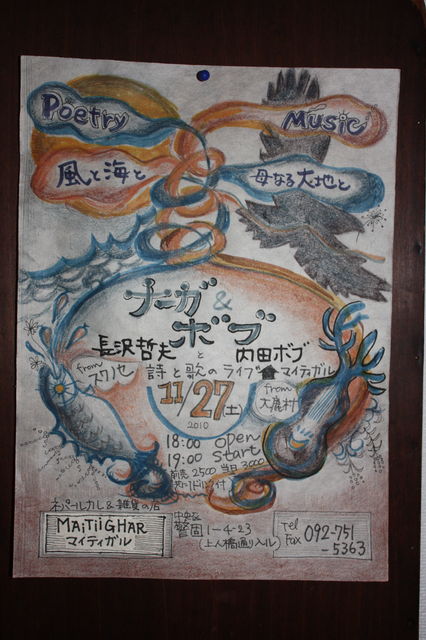 Poetry
Music
風と海と
母なる大地と
ナーガ &
ボブ
長沢哲夫 と 内田ボブ
from スワノセ
詩と歌のライブ
マイティガル
11/27(土)
from 大鹿村
2010
18:00 open
19:00 start
前売 2500 当日 3000
ネパールカレー & 雑貨の店
MAiTiiGHAR
マイティガル
中央区
警固 1-4-23
(上人橋通り入ル)
Tel
Fax
092-751
-5363